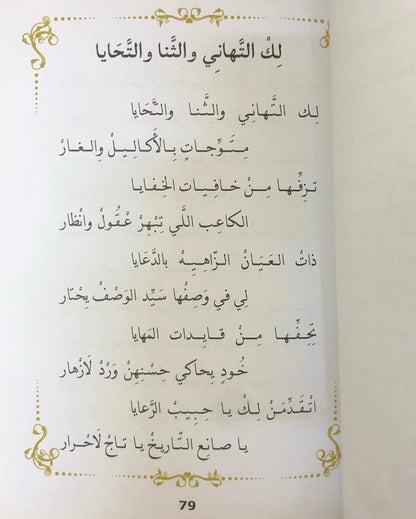 لِكْ التَّهانِي والثَّنا والتَّحَايا
لِك التَّهاني والثَّنا والتَّحَايا
مِتَوِّجاتٍ بِالأَكالِيلْ والغارْ
تزِفِّها مِنْ خافيات الخِفايا
الكاعِب اللَّي تِبْهِرْ عْقُولْ وانْظار
ذاتْ العَيَانْ الزَّاهِيِهْ بالدَّعايا
لِي في وَصِفْها سَيِّد الوَصْفْ يِحْتار
تِحِفِّها مِنْ قايِدات المَهايا
خُودٍ يِحاكي حِسْنِهِنْ وَرْدْ لَازْهار
اتْقَدِّمَنْ لِكْ يا حِبِيبْ الرَّعايا
يا صانِع التَّاريخْ يا تاجْ لَاحْرار
79